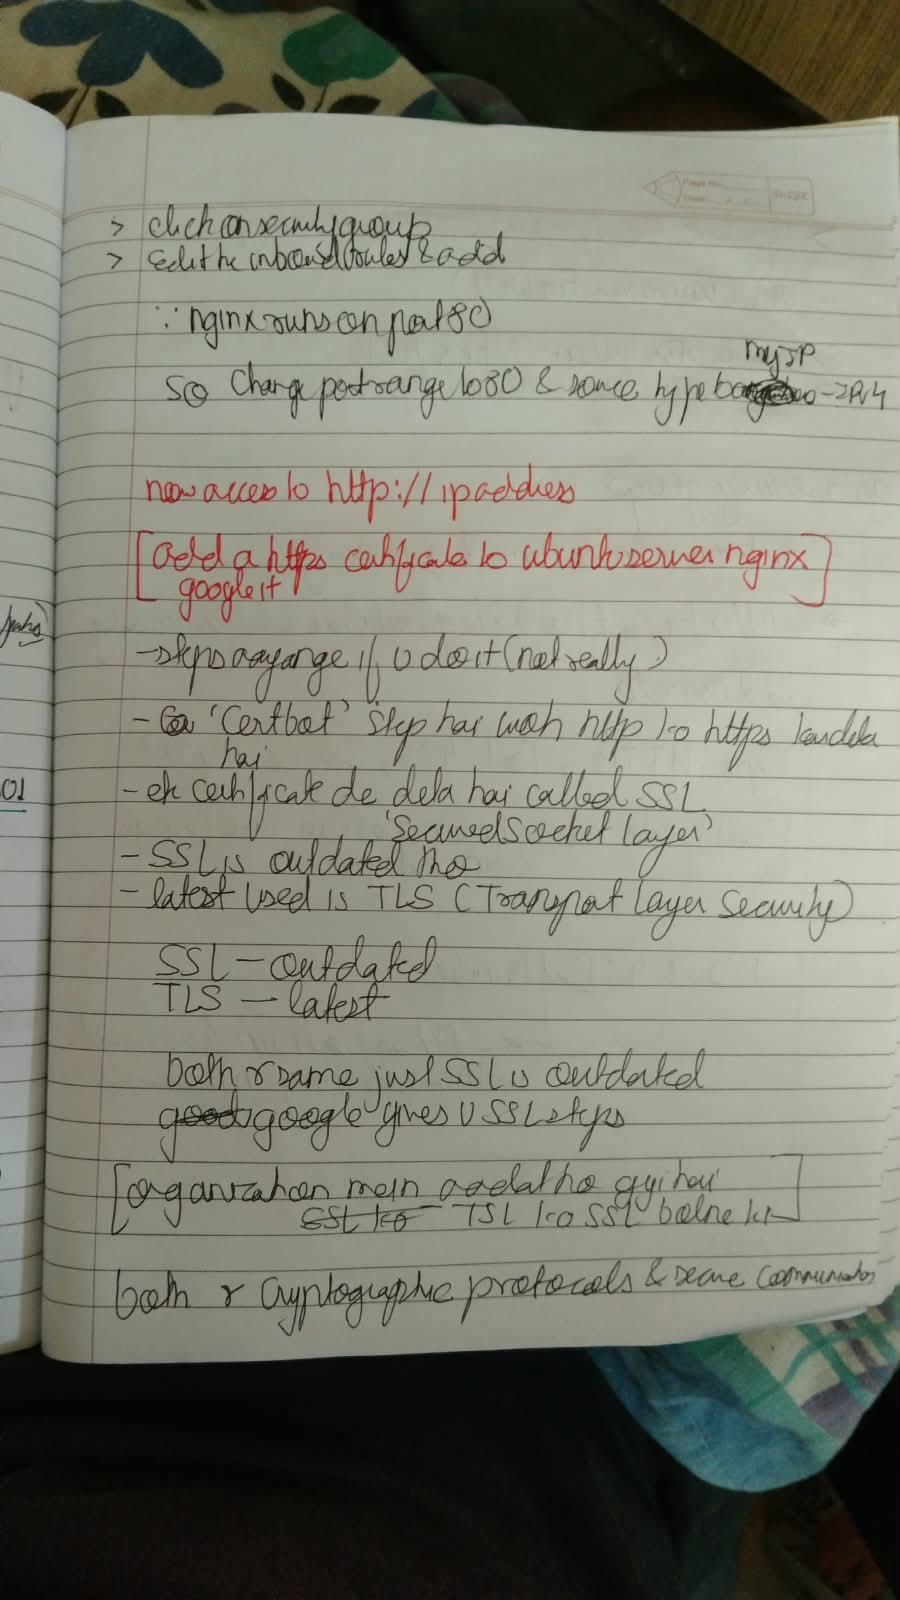 > click on security group
> edit the inbound rules & add
∵ nginx runs on port 80
so change port range to 80 & source type to my IP - IPv4
now access to http:// ip address
[add a https certificate to ubuntu server nginx
google it]
- steps aayange if u do it (not really)
- 'Certbot' step hai woh http ko https kardeta
hai
- ek certificate de deta hai called SSL
'Secured Socket layer'
- SSL is outdated tho
- latest used is TLS (Transport Layer Security)
SSL - outdated
TLS - latest
both r same just SSL is outdated
google gives U SSL steps
[organization mein aadat ho gyi hai
SSL ko TSL ko SSL bolne ki]
both r cryptographic protocols & secure communication
01